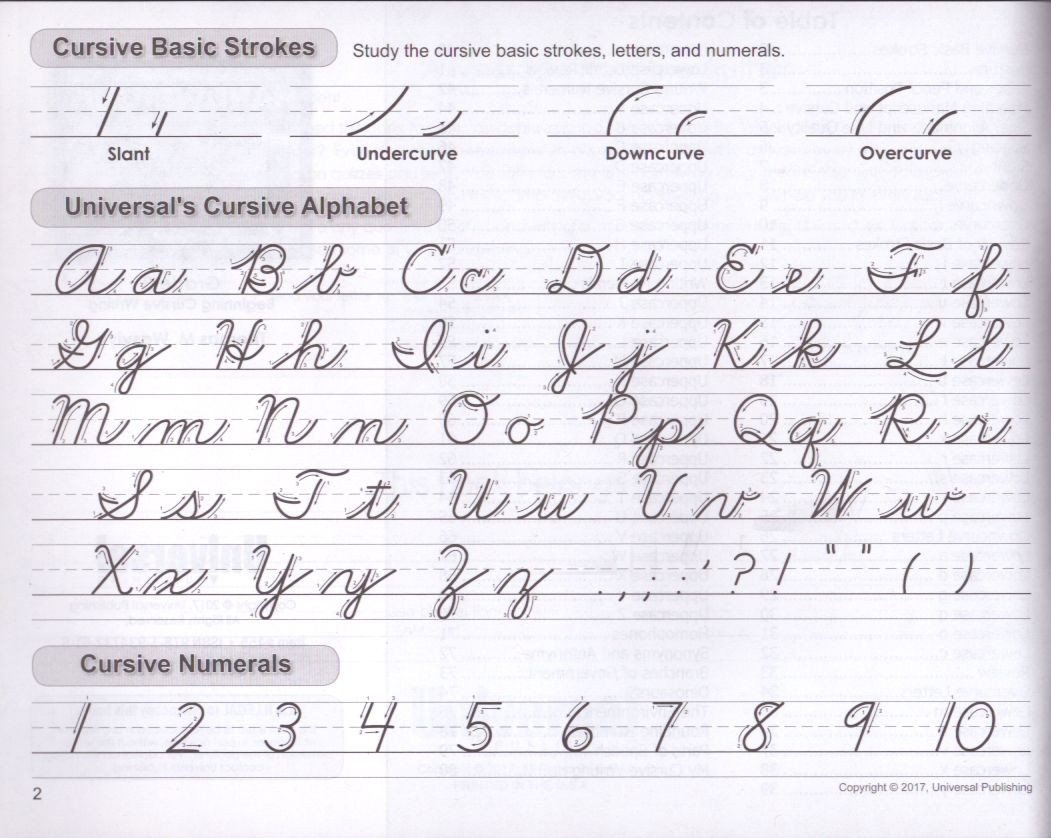 Cursive Basic Strokes Study the cursive basic strokes, letters, and numerals.
Slant Undercurve Downcurve Overcurve
Universal's Cursive Alphabet
A a B b C c D d E e F f
G g H h I i J j K k L l
M m N n O o P p Q q R r
S s T t U u V v W w
X x Y y Z z . , ; : ' ? ! " " ( )
Cursive Numerals
1 2 3 4 5 6 7 8 9 10
2 Copyright © 2017, Universal Publishing